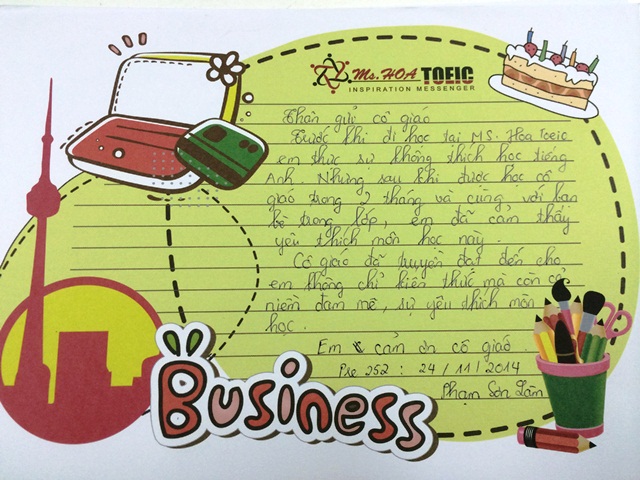 Ms. HOA TOEIC
INSPIRATION MESSENGER
Thân gửi cô giáo
Trước khi đi học tại MS. Hoa Toeic
em thực sự không thích học tiếng
Anh. Nhưng sau khi được học cô
giáo trong 2 tháng và cùng với bạn
bè trong lớp, em đã cảm thấy
yêu thích môn học này.
Cô giáo đã truyền đạt đến cho
em không chỉ kiến thức mà còn cả
niềm đam mê, sự yêu thích môn
học.
Em cảm ơn cô giáo
Pre 252 : 24/11/2014
Phạm Sơn Lâm
Business